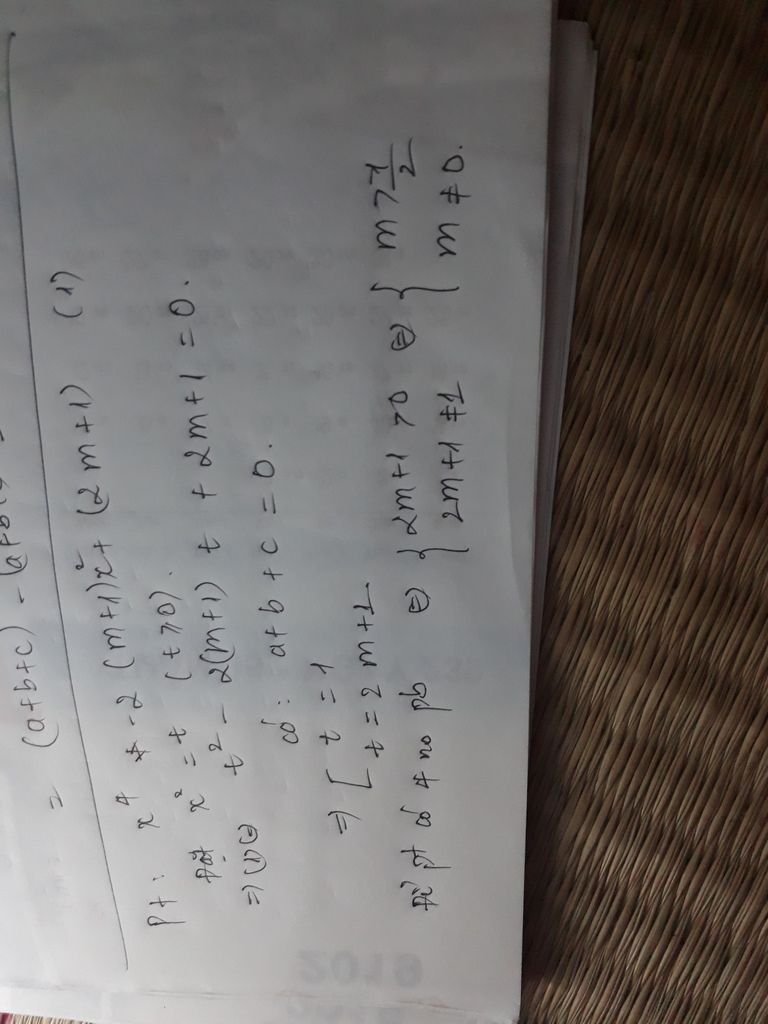 = (a+b+c) - (a+b
Pt: x⁴ - 2(m+1)x² + (2m+1) (1)
Đặt x² = t (t≥0).
⇒ (1) ⇔ t² - 2(m+1) t + 2m+1 = 0.
có: a+b+c = 0.
⇒ [ t = 1
t = 2m+1
Để pt có 4 no pb ⇔ { 2m+1 >0 ⇔ { m > 1/2
2m+1 ≠1 m ≠ 0.
2019